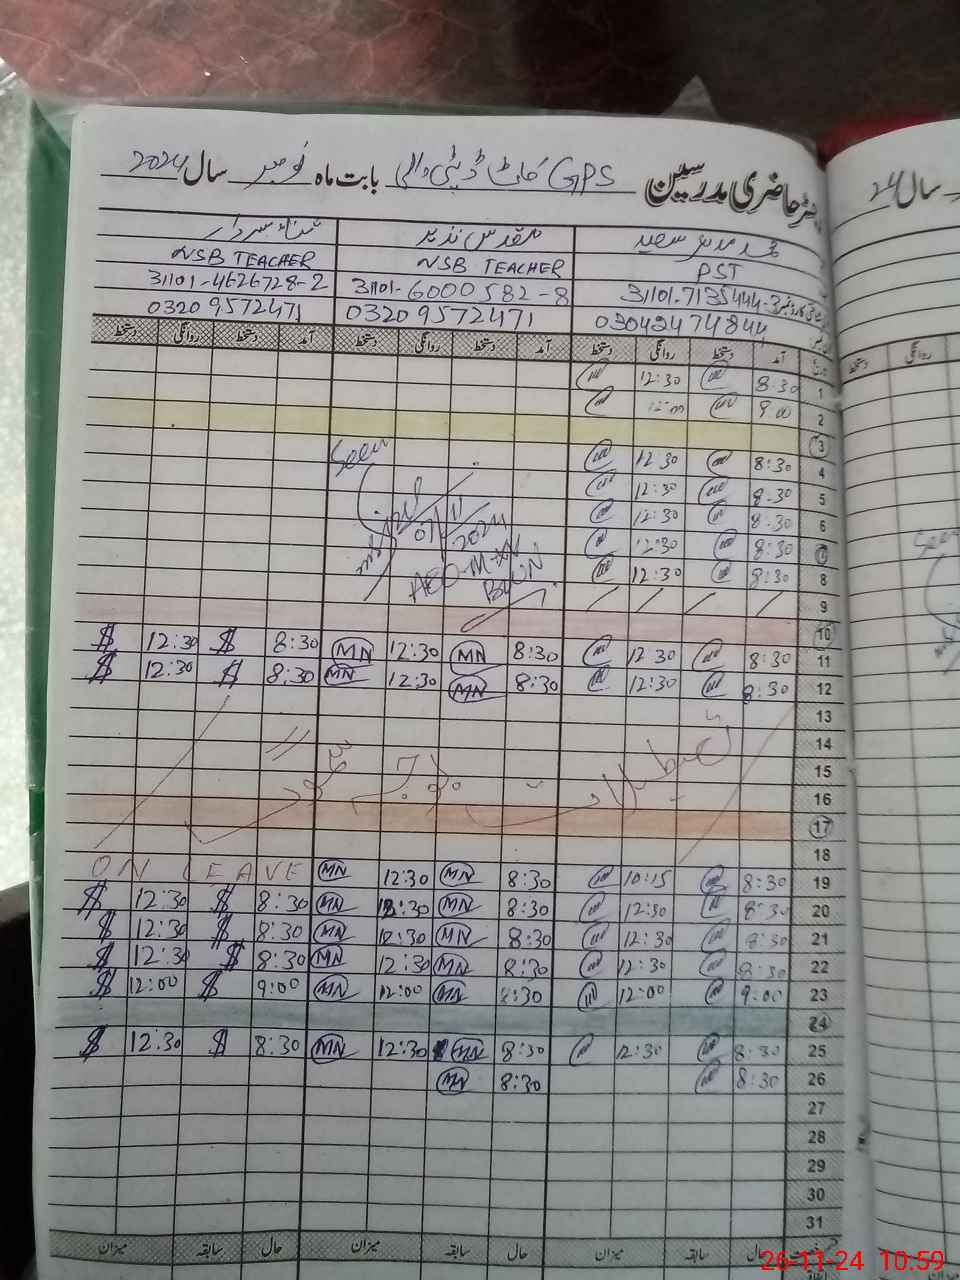 رجسٹر حاضری مدرسین GPS بابت ماہ نومبر سال 2024
محمد مدثر سعید مقدس نذیر ثناء سردار
PST NSB TEACHER NSB TEACHER
31101-7135444-3 31101-6000582-8 31101-4626728-2
03042474844 03209572471 03209572471
آمد دستخط روانگی دستخط آمد دستخط روانگی دستخط آمد دستخط روانگی دستخط
1 8:30 12:30
2 9:00
3
4 8:30 12:30 Seen
5 8:30 12:30
6 8:30 12:30 07/11/2024
7 8:30 12:30
8 8:30 12:30
9
10
11 8:30 12:30 8:30 MN 12:30 MN 8:30 $ 12:30 $
12 8:30 12:30 8:30 MN 12:30 MN 8:30 $ 12:30 $
13
14
15
تعطیلات بوجہ سموگ
16
17
18
19 8:30 10:15 8:30 MN 12:30 MN ON LEAVE
20 8:30 12:30 8:30 MN 12:30 MN 8:30 $ 12:30 $
21 8:30 12:30 8:30 MN 12:30 MN 8:30 $ 12:30 $
22 8:30 12:30 8:30 MN 12:30 MN 8:30 $ 12:30 $
23 9:00 12:00 8:30 MN 12:00 MN 9:00 $ 12:00 $
24
25 8:30 12:30 8:30 MN 12:30 MN 8:30 $ 12:30 $
26 8:30 8:30 MN
27
28
29
30
31
حال سابقہ میزان حال سابقہ میزان حال سابقہ میزان
سال 24
روانگی دستخط
Seen
26-11-24 10.59